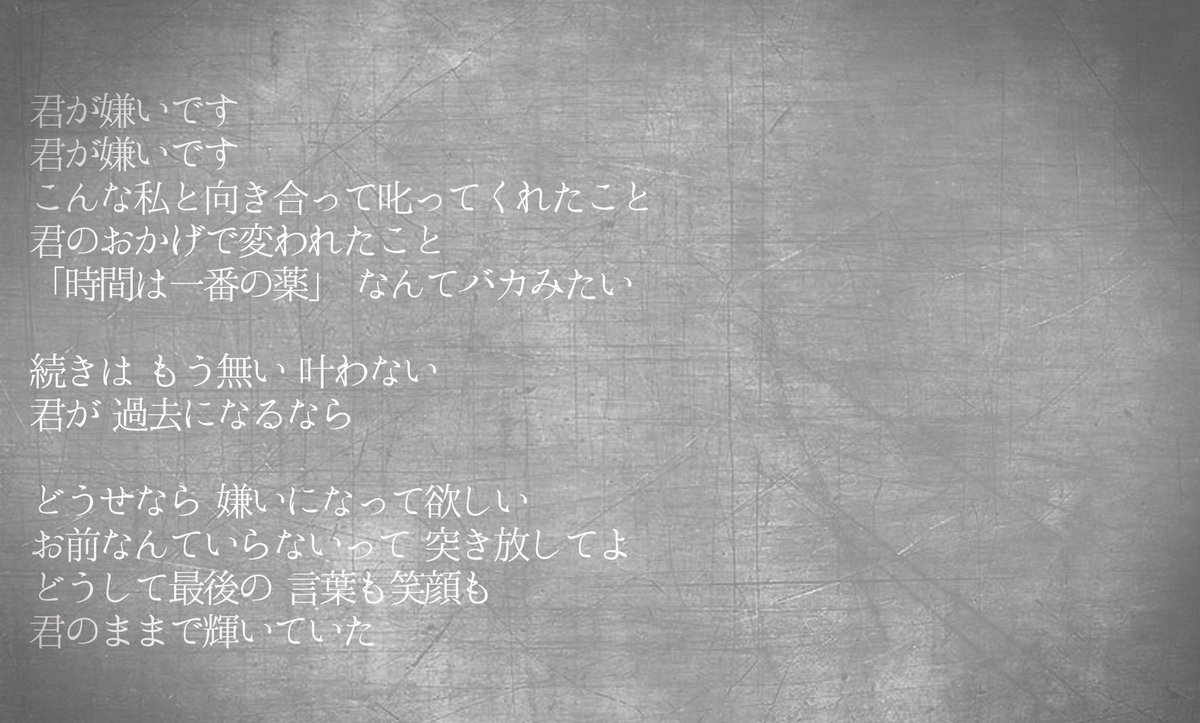 君が嫌いです
君が嫌いです
こんな私と向き合って叱ってくれたこと
君のおかげで変われたこと
「時間は一番の薬」 なんてバカみたい
続きは もう無い 叶わない
君が 過去になるなら
どうせなら 嫌いになって欲しい
お前なんていらないって 突き放してよ
どうして最後の 言葉も笑顔も
君のままで輝いていた